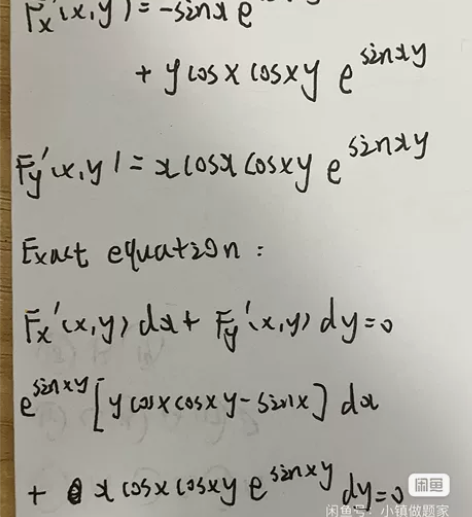 Fx'(x,y)=-sinx e
+ y cosx cosxy e^sinxy
Fy'(x,y)=x cosx cosxy e^sinxy
Exact equation:
Fx'(x,y)dx+Fy'(x,y)dy=0
e^sinxy[y cosx cosxy-sinx]dx
+ x cosx cosxy e^sinxy dy=0
闲鱼
闲鱼号:小镇做题家